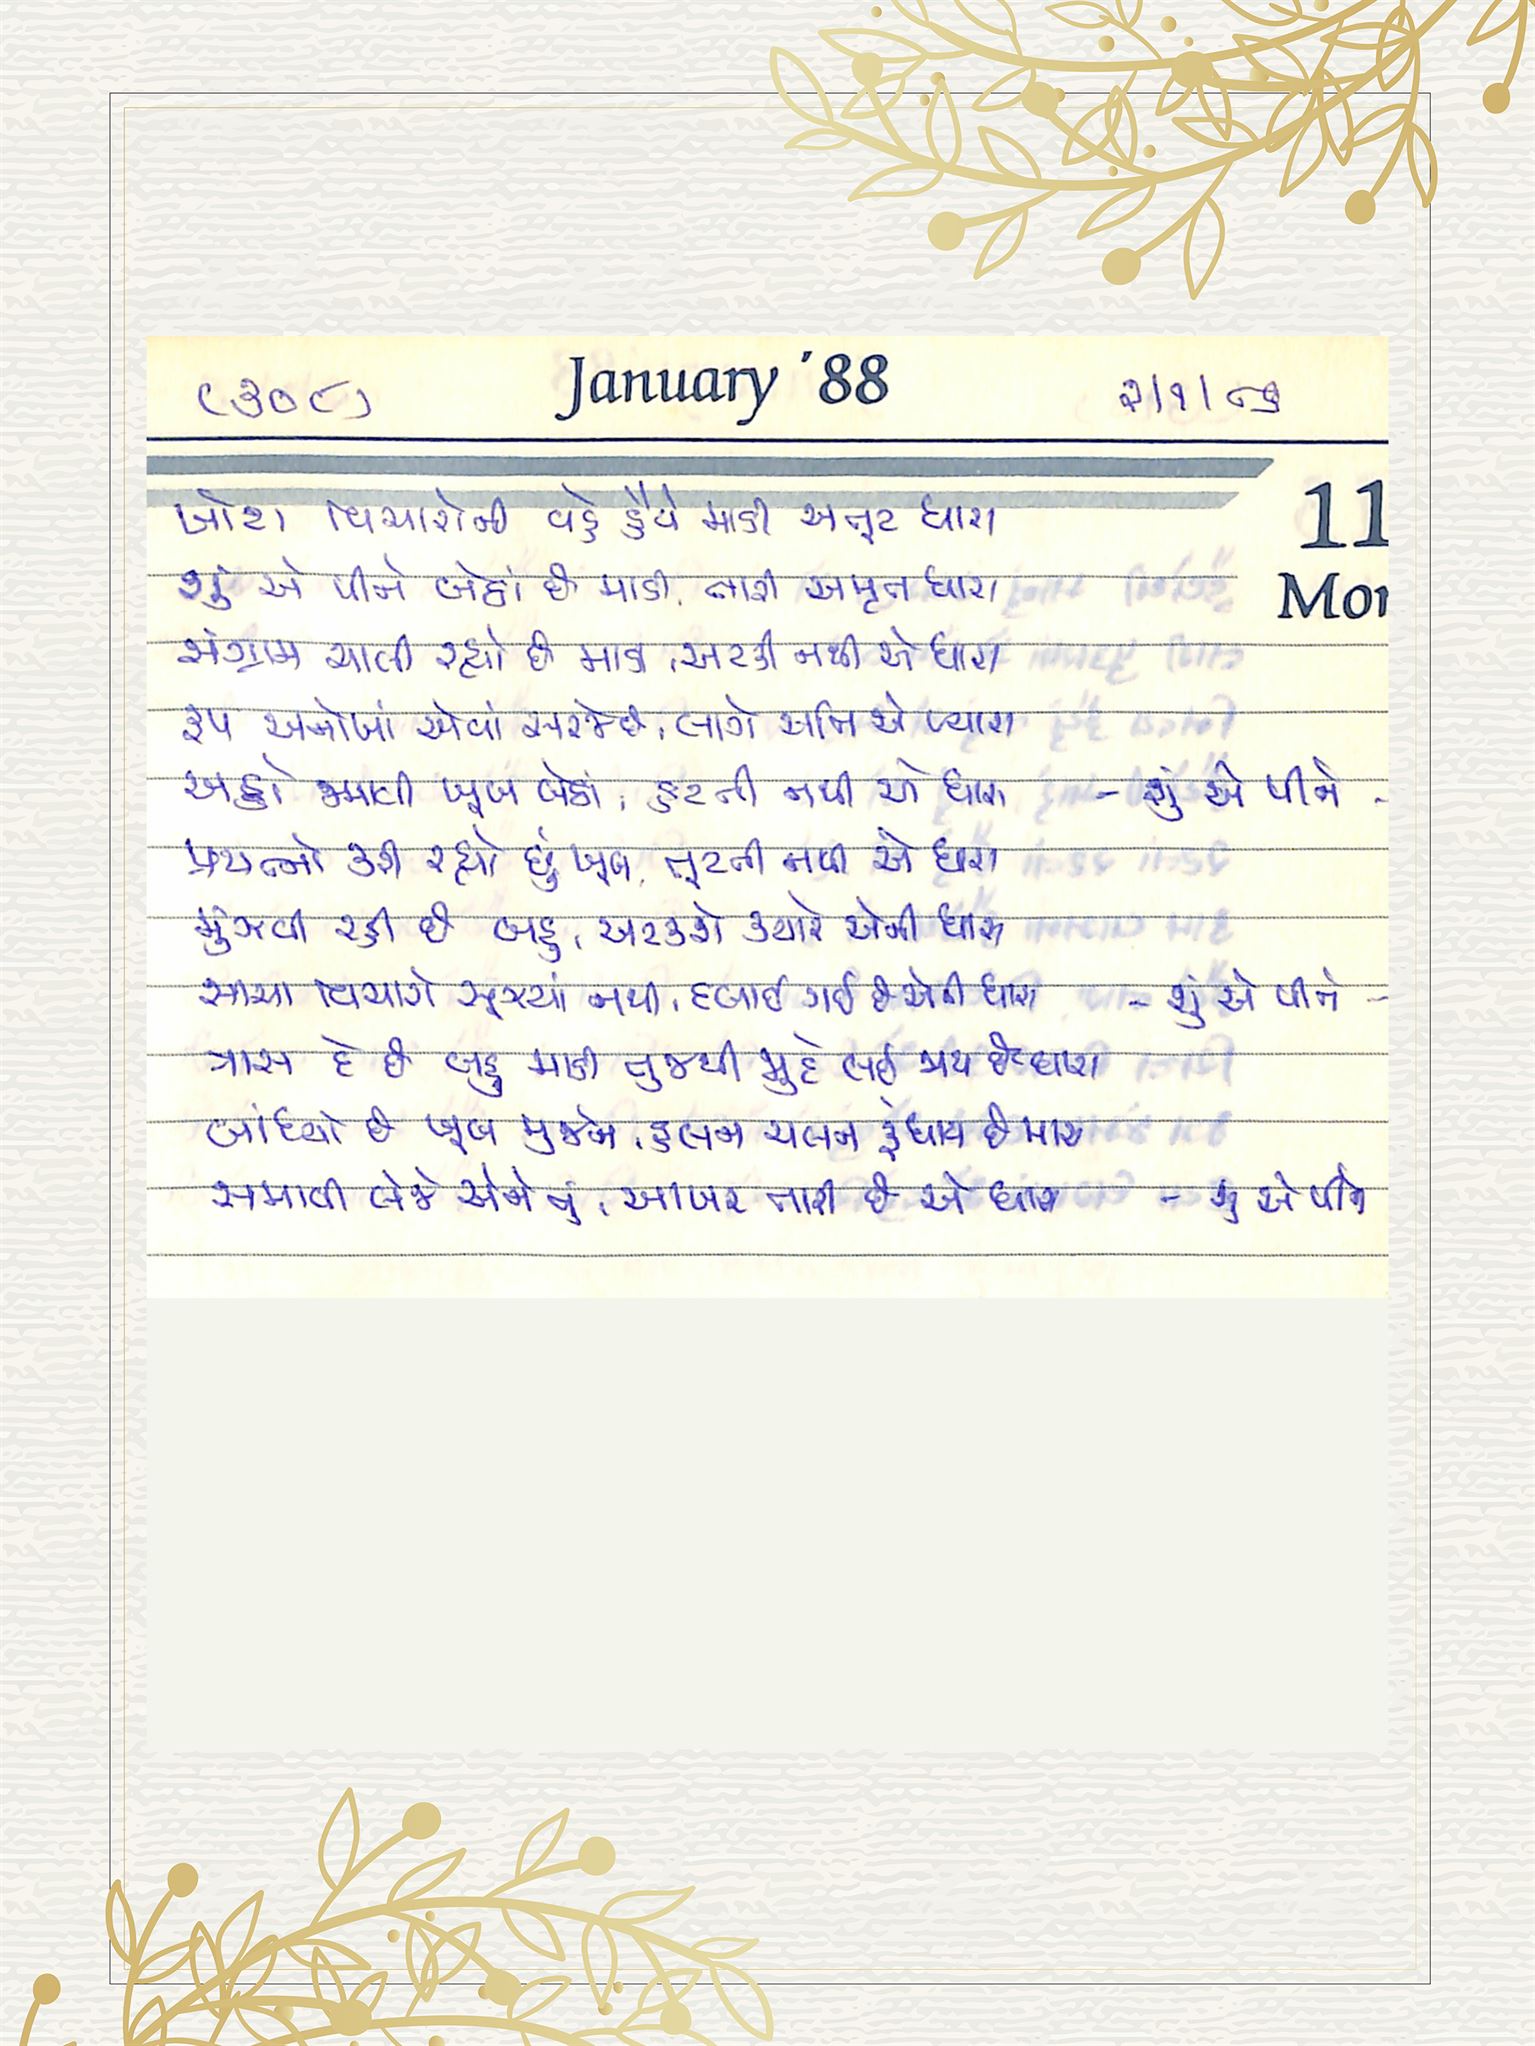 January '88
(૩૦૮) ૨/૧/૮૬
11
Mon
ખોટા વિચારોની વહે હૈયે માડી અતૂટ ધારા
શું એ પીને બેઠાં છે માડી, તારી અમૃત ધારા
સંગ્રામ ચાલી રહ્યો છે માડી, અટકી નથી એ ધારા
રૂપ અનોખાં એવાં સરજે છે, લાગે અતિ એ પ્યારા
અડ્ડો જમાવી ખૂબ બેઠાં, હટતી નથી એ ધારા - શું એ પીને -
પ્રયત્નો કરી રહ્યો છું ખૂબ, તૂટતી નથી એ ધારા
મુંઝવી રહી છે બહુ, અટકશે ક્યારે એની ધારા
સાચા વિચારો સૂઝ્યાં નથી, દબાઈ ગઈ છે એની ધારા - શું એ પીને -
ત્રાસ દે છે બહુ માડી તુજથી મુદે લઈ જાય છે ધારા
બાંધ્યો છે ખૂબ મુજને, હલન ચલન રૂંધાય છે મારા
સમાવી લેજે એને તું, આખર તારી છે એ ધારા - શું એ પીને